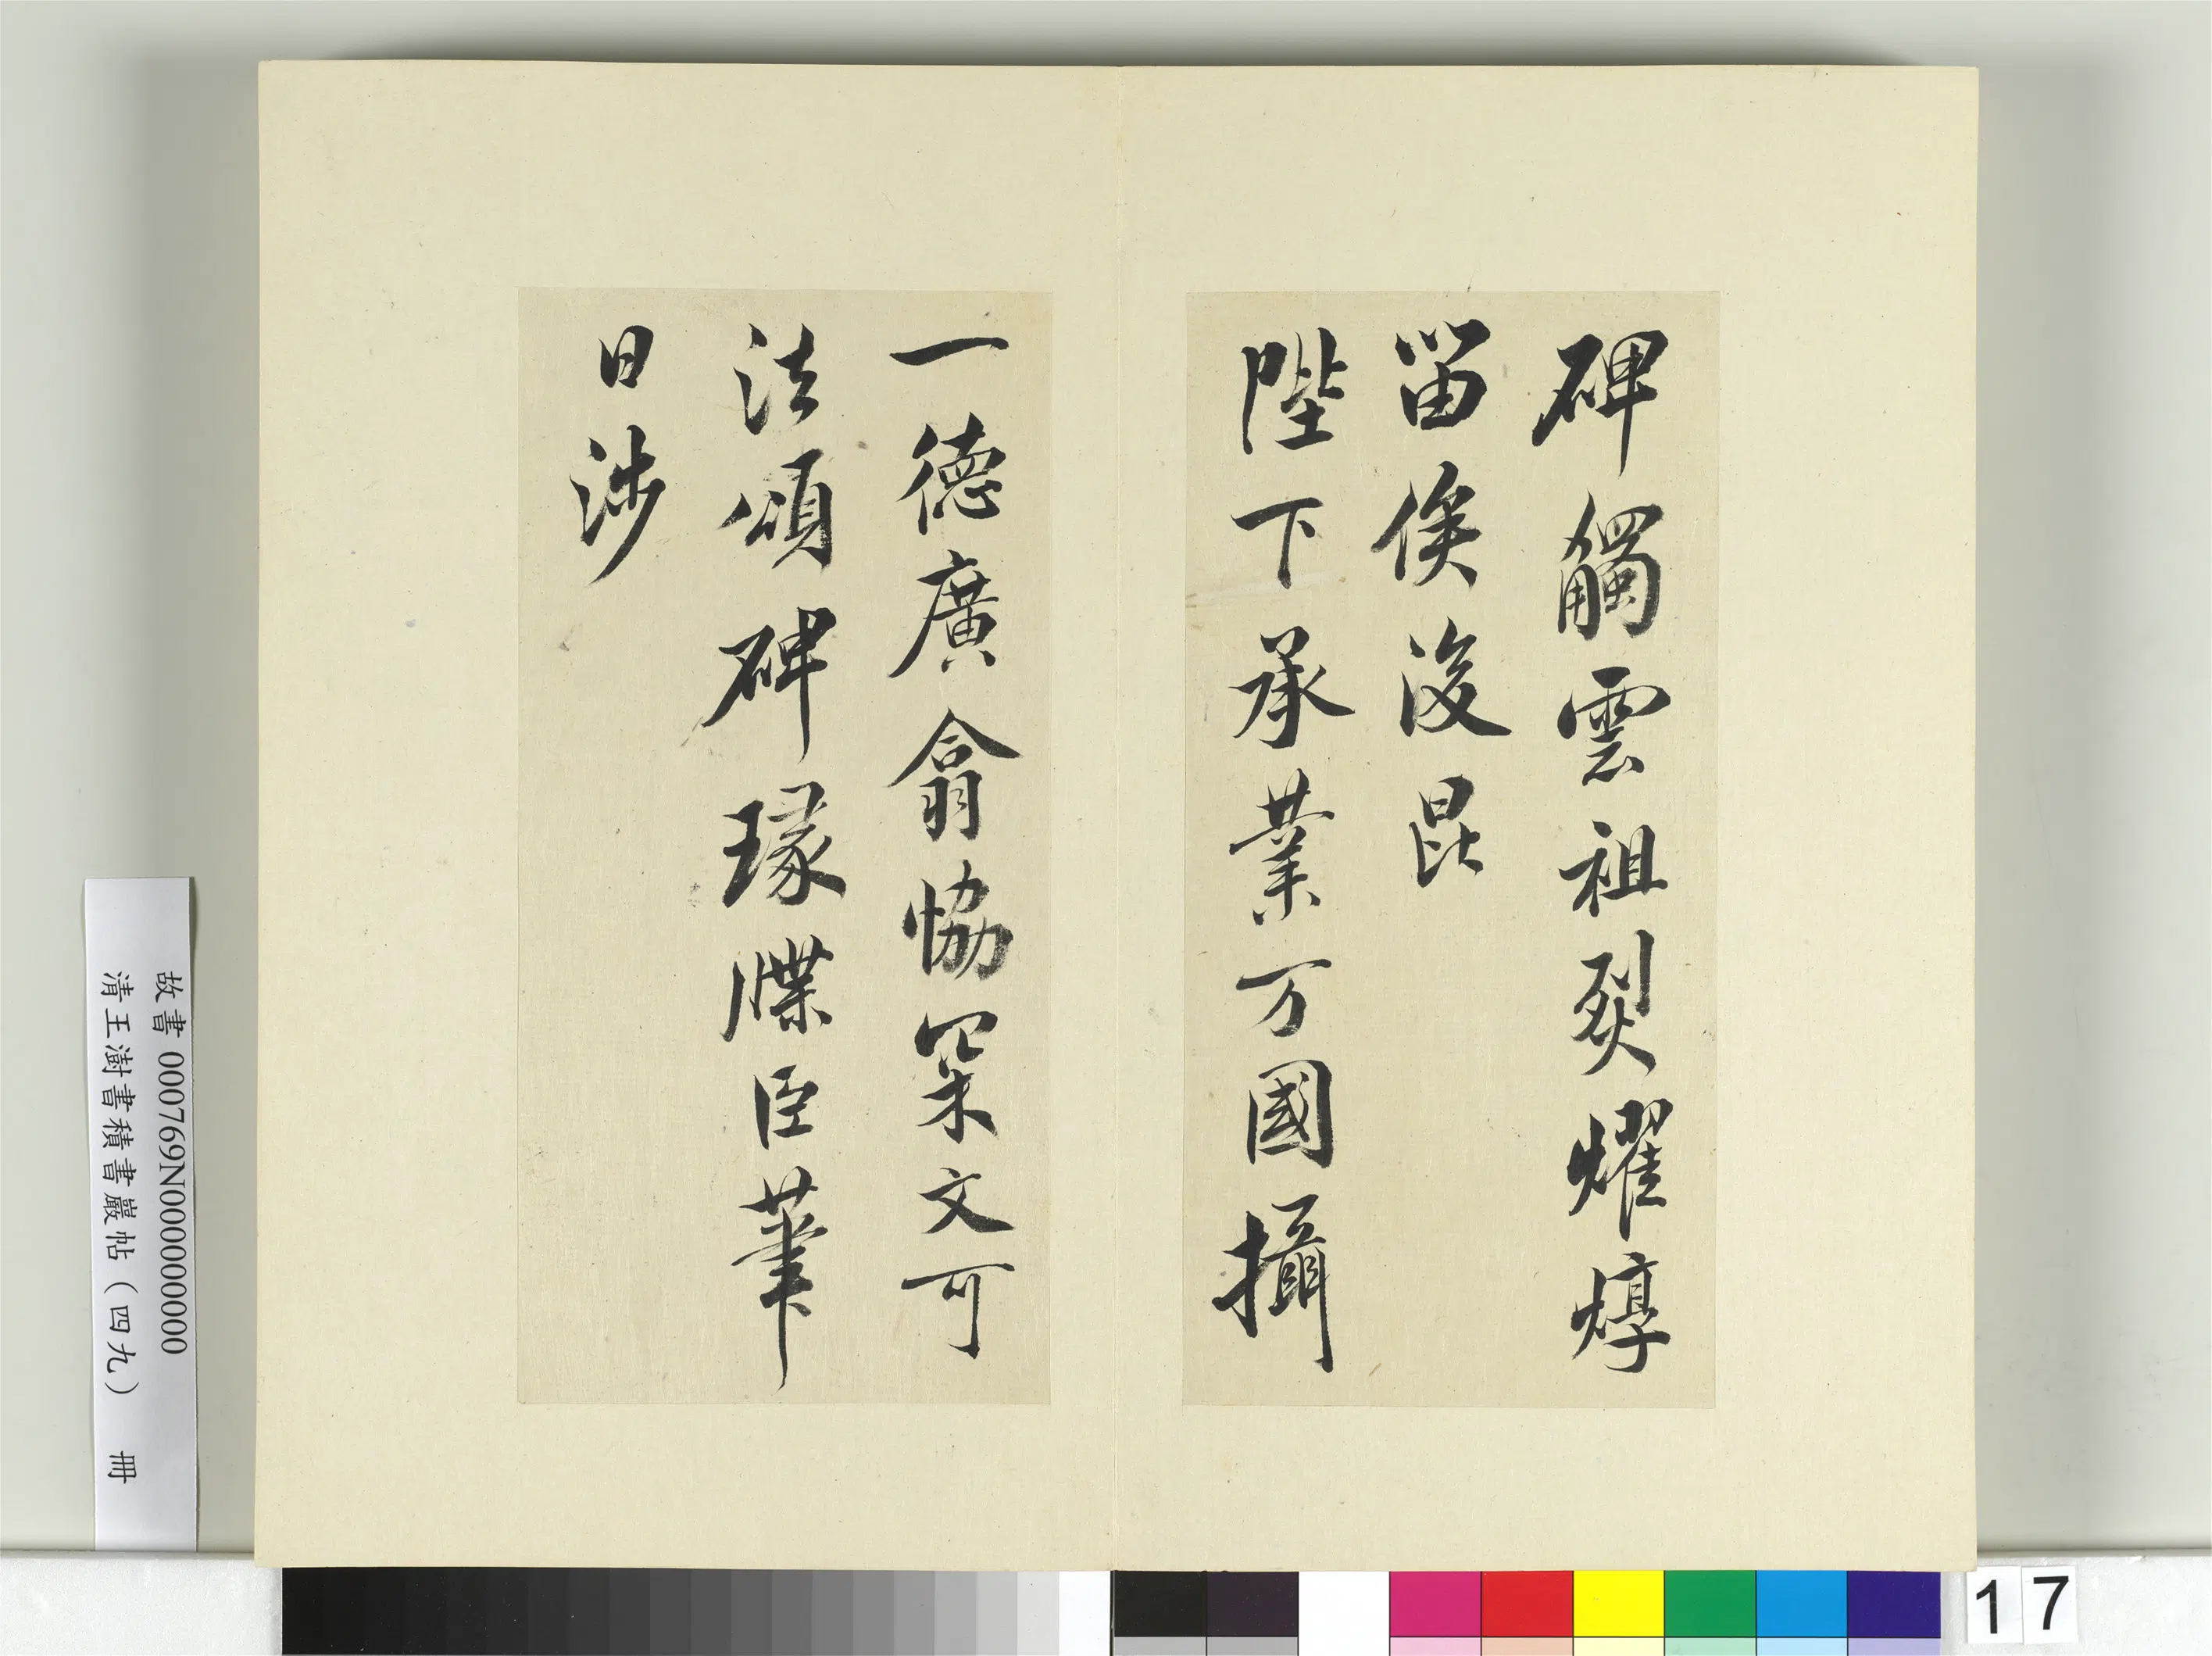 碑觸雲祖烈耀焞
留侯後昆
陛下承業万國攝
一德廣翕協深文可
法頌碑瑑牒臣華
日涉
故書 000769N000000000
清王澍書積書巖帖（四九） 冊
17